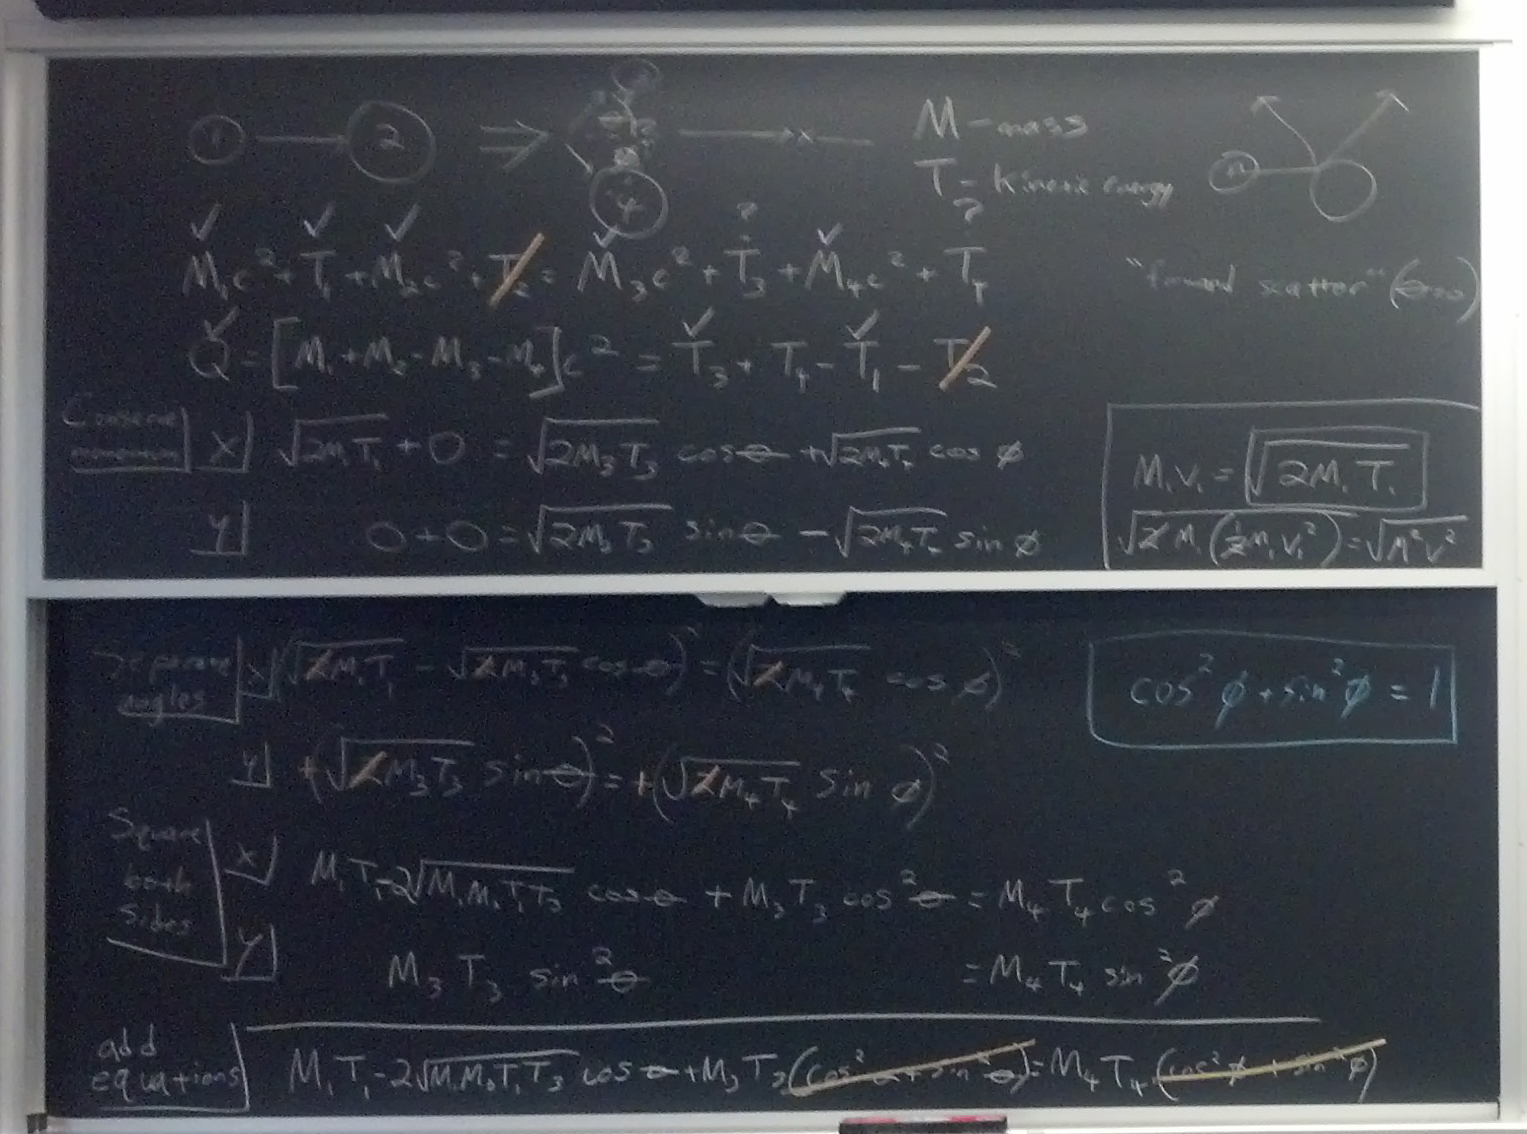 1 2 4 M - mass
T - Kinetic energy
✓ ✓ ✓ ✓ ? ✓ ?
M₁c² + T₁ + M₂c² + T₂ = M₃c² + T₃ + M₄c² + T₄
"forward scatter" (θ=0)
✓ ✓ ✓
Q = [M₁ + M₂ - M₃ - M₄]c² = T₃ + T₄ - T₁ - T₂
Conserve momentum x √2M₁T₁ + 0 = √2M₃T₃ cosθ + √2M₄T₄ cos ϕ
y 0 + 0 = √2M₃T₃ sinθ - √2M₄T₄ sin ϕ
M₁V₁ = √2M₁T₁
√2M₁(½M₁V₁²) = √M²V²
Separate angles x (√2M₁T₁ - √2M₃T₃ cosθ)² = (√2M₄T₄ cos ϕ)²
y +(√2M₃T₃ sinθ)² = +(√2M₄T₄ sin ϕ)²
cos²ϕ + sin²ϕ = 1
Square both sides x M₁T₁ - 2√M₁M₃T₁T₃ cosθ + M₃T₃ cos²θ = M₄T₄ cos²ϕ
y M₃T₃ sin²θ = M₄T₄ sin²ϕ
add equations M₁T₁ - 2√M₁M₃T₁T₃ cosθ + M₃T₃(cos²θ + sin²θ) = M₄T₄(cos²ϕ + sin²ϕ)